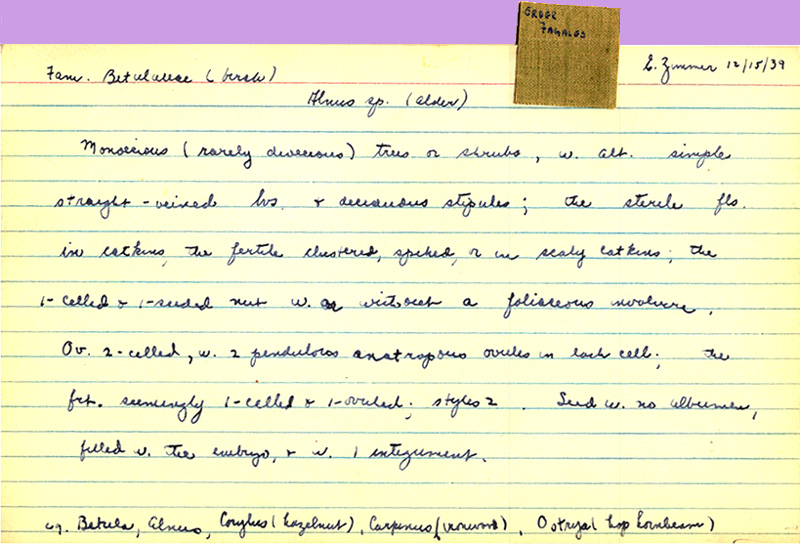 ORDER
FAGALES
E. Zimmer 12/15/39
Fam. Betulaceae (birch)
Alnus sp. (alder)
Monoecious (rarely dioecious) trees or shrubs, w. alt. simple
straight-veined lvs. & deciduous stipules; the sterile fls.
in catkins, the fertile clustered, spiked, or in scaly catkins; the
1-celled & 1-seeded nut w. or without a foliaceous involucre.
Ov. 2-celled, w. 2 pendulous anatropous ovules in each cell; the
frt. seemingly 1-celled & 1-ovuled; styles 2. Seed w. no albumen,
filled w. the embryo, & w. 1 integument.
eg. Betula, Alnus, Corylus (hazelnut), Carpinus (ironwood), Ostrya (hop hornbeam)